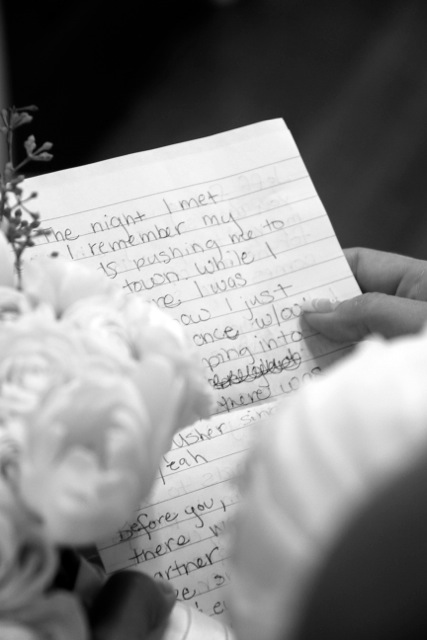 The night I met
I remember my
is pushing me to
town while I
I was
I just
once w/o
ping into
there was
usher sin
yeah
Before you,
there w
artner